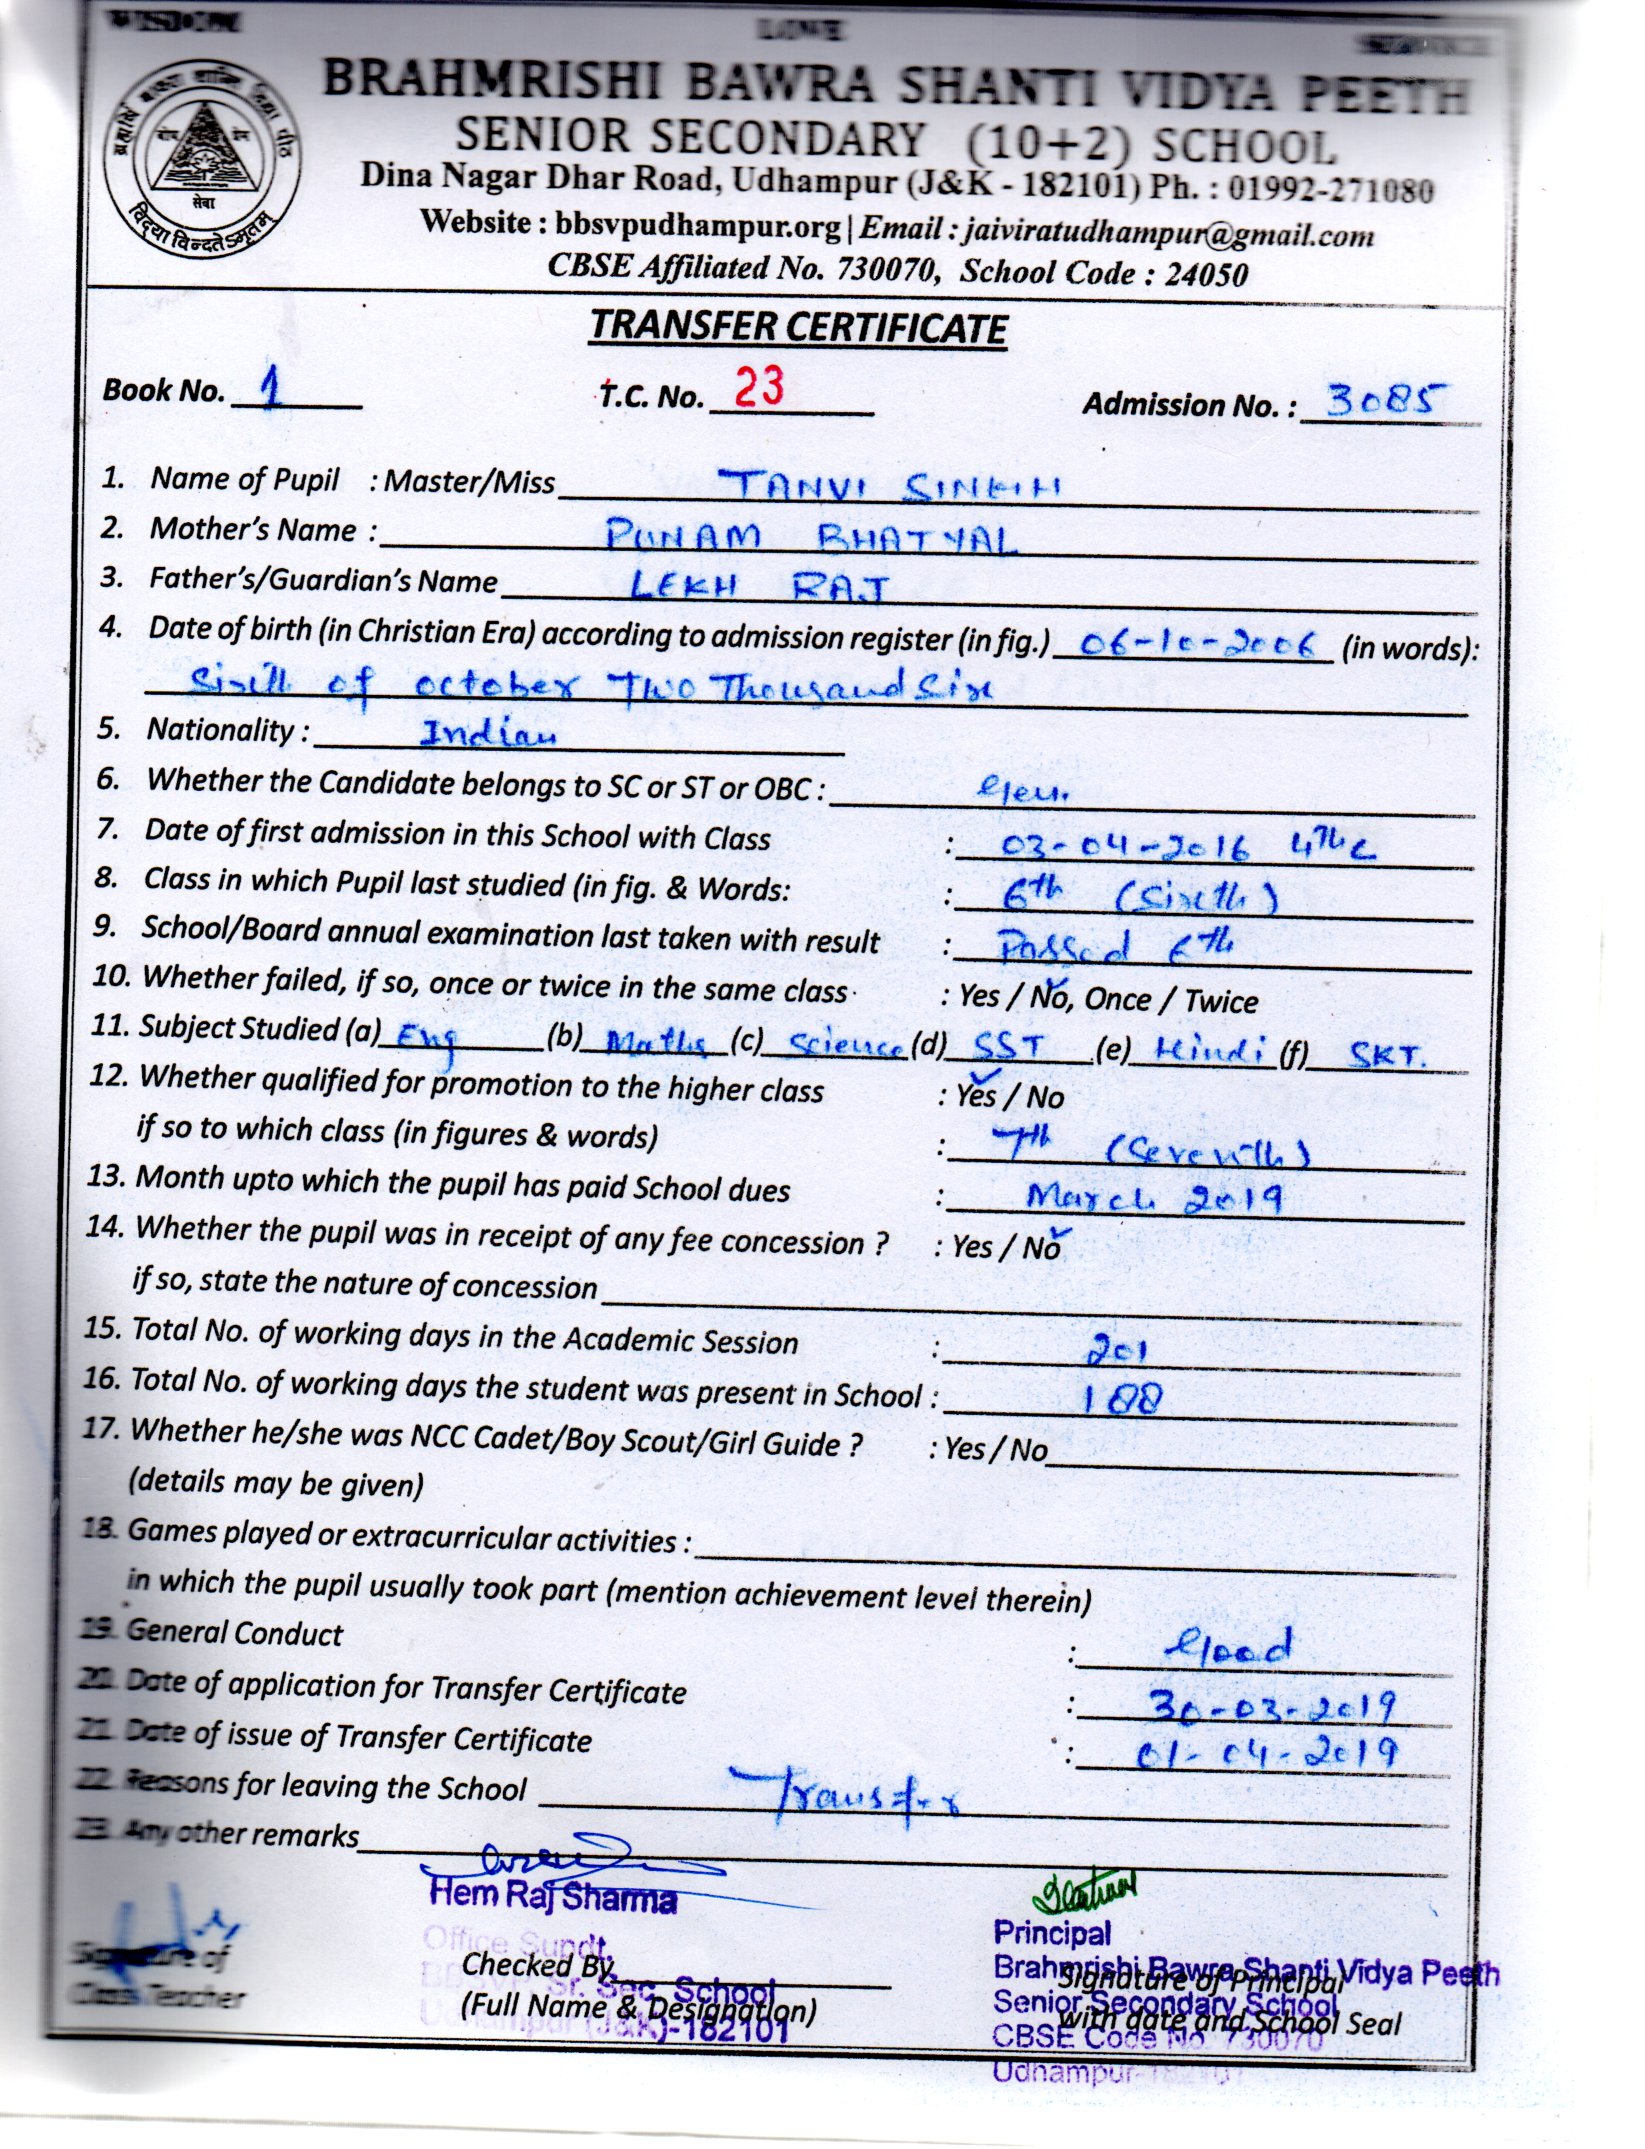 WISDOM LOVE SERVICE
BRAHMRISHI BAWRA SHANTI VIDYA PEETH
SENIOR SECONDARY (10+2) SCHOOL
Dina Nagar Dhar Road, Udhampur (J&K - 182101) Ph. : 01992-271080
Website : bbsvpudhampur.org | Email : jaiviratudhampur@gmail.com
CBSE Affiliated No. 730070, School Code : 24050
ब्रह्मर्षि बावरा शान्ति विद्या पीठ
सेवा
विद्या विन्दतेऽमृतम्
TRANSFER CERTIFICATE
Book No. 1 T.C. No. 23 Admission No. : 3085
1. Name of Pupil : Master/Miss TANVI SINGH
2. Mother's Name : PUNAM BHATYAL
3. Father's/Guardian's Name LEKH RAJ
4. Date of birth (in Christian Era) according to admission register (in fig.) 06-10-2006 (in words):
Sixth of october Two Thousand Six
5. Nationality : Indian
6. Whether the Candidate belongs to SC or ST or OBC : Gen.
7. Date of first admission in this School with Class : 03-04-2016 4th
8. Class in which Pupil last studied (in fig. & Words: : 6th (Sixth)
9. School/Board annual examination last taken with result : Passed 6th
10. Whether failed, if so, once or twice in the same class : Yes / No, Once / Twice
11. Subject Studied (a) Eng (b) Maths (c) Science (d) SST (e) Hindi (f) SKT.
12. Whether qualified for promotion to the higher class : Yes / No
if so to which class (in figures & words) : 7th (Seventh)
13. Month upto which the pupil has paid School dues : March 2019
14. Whether the pupil was in receipt of any fee concession ? : Yes / No
if so, state the nature of concession
15. Total No. of working days in the Academic Session : 201
16. Total No. of working days the student was present in School : 188
17. Whether he/she was NCC Cadet/Boy Scout/Girl Guide ? : Yes / No
(details may be given)
18. Games played or extracurricular activities :
in which the pupil usually took part (mention achievement level therein)
19. General Conduct : Good
20. Date of application for Transfer Certificate : 30-03-2019
21. Date of issue of Transfer Certificate : 01-04-2019
22. Reasons for leaving the School Transfer
23. Any other remarks
Hem Raj Sharma
Office Supdt.
BBSVP Sr. Sec. School
Udhampur (J&K)-182101
Signature of
Class Teacher
Checked By
(Full Name & Designation)
Principal
Brahmrishi Bawra Shanti Vidya Peeth
Senior Secondary School
CBSE Code No. 730070
Udhampur-182101
Signature of Principal
with date and School Seal